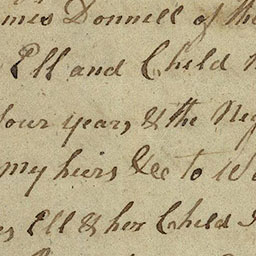 mes Donnell of the
Ell and Child
four years & the Neg
my heirs &c to
Ell & her Child